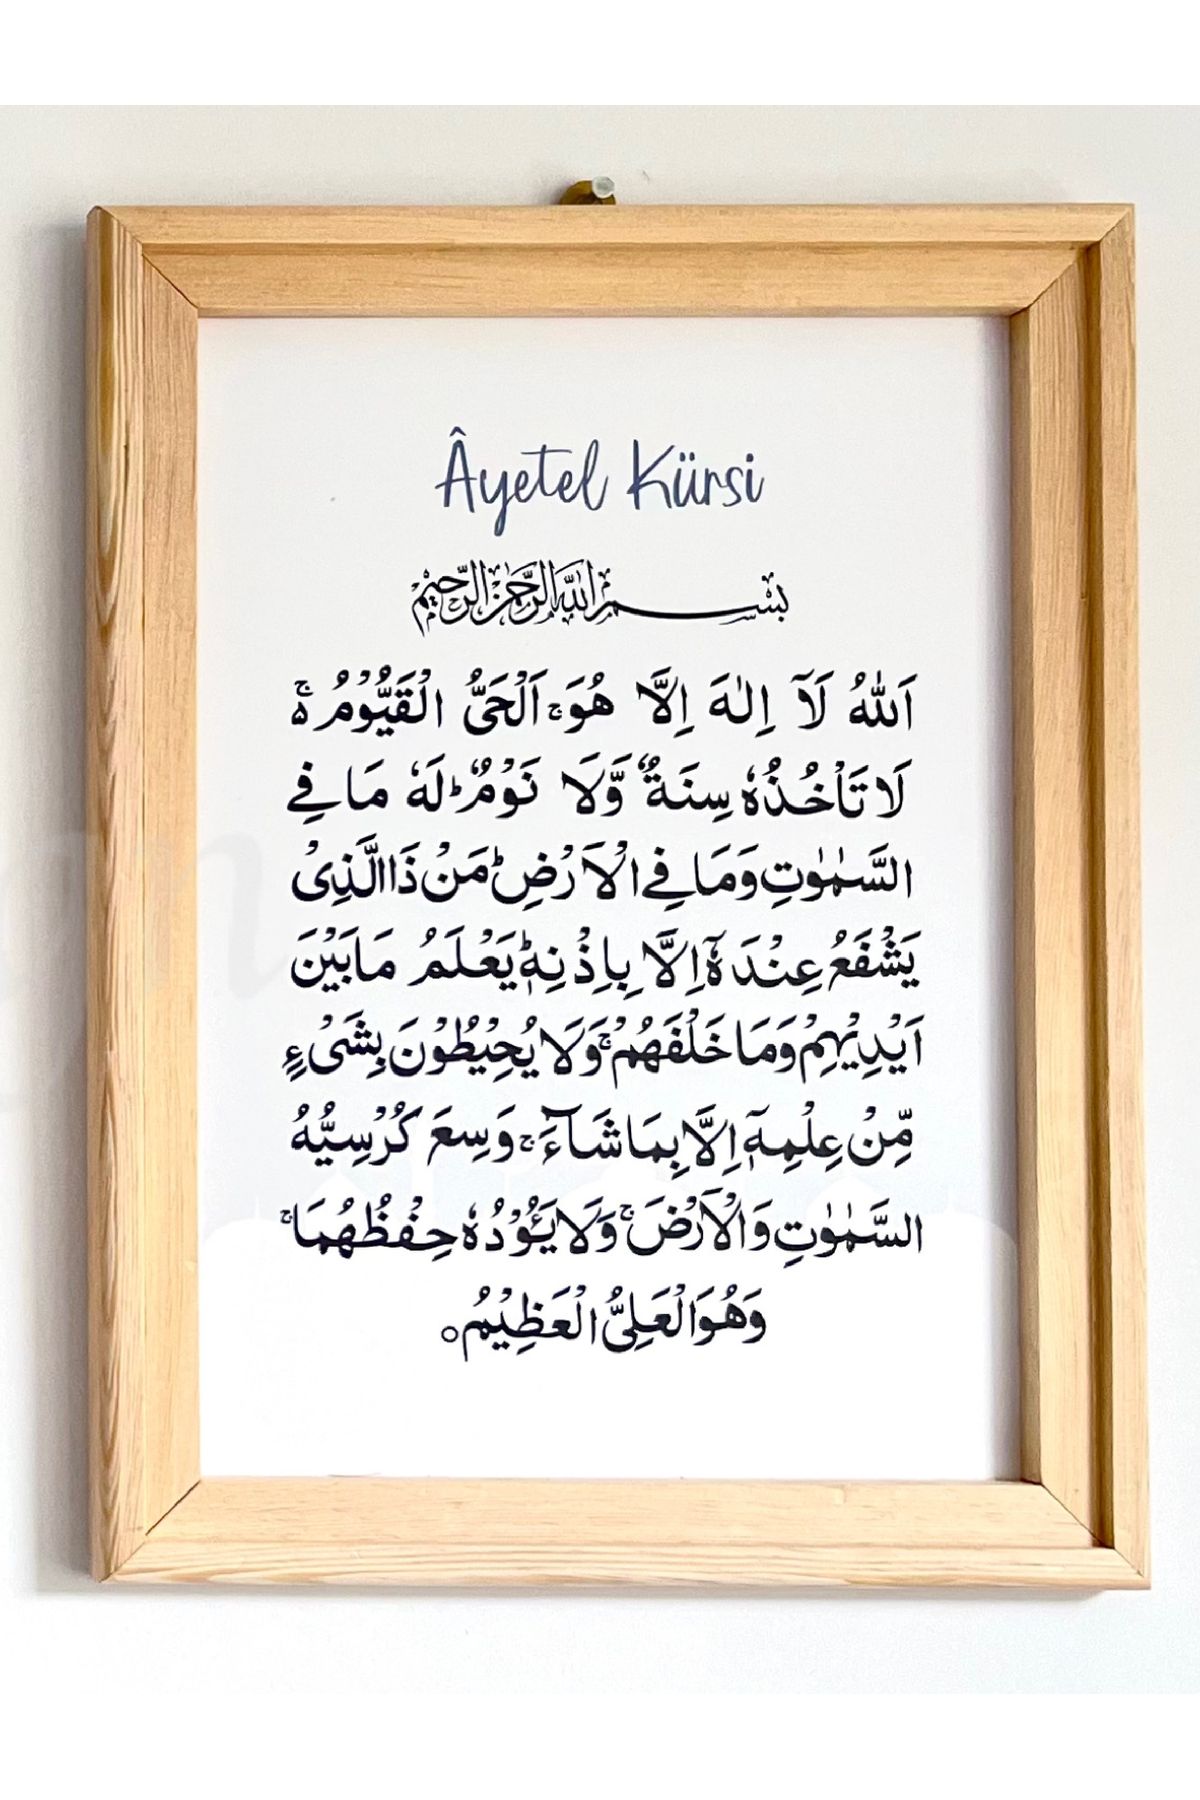 Âyetel Kürsi
بِسْمِ اللّٰهِ الرَّحْمٰنِ الرَّحِيْمِ
اَللّٰهُ لَآ اِلٰهَ اِلَّا هُوَۚ اَلْحَيُّ الْقَيُّوْمُ ۚ۬
لَا تَأْخُذُهٗ سِنَةٌ وَّلَا نَوْمٌ ؕ لَهٗ مَا فِي
السَّمٰوٰتِ وَمَا فِي الْاَرْضِ ؕ مَنْ ذَا الَّذِيْ
يَشْفَعُ عِنْدَهٗٓ اِلَّا بِاِذْنِهٖ ؕ يَعْلَمُ مَا بَيْنَ
اَيْدِيْهِمْ وَمَا خَلْفَهُمْ ۚ وَلَا يُحِيْطُوْنَ بِشَيْءٍ
مِّنْ عِلْمِهٖٓ اِلَّا بِمَا شَآءَ ۚ وَسِعَ كُرْسِيُّهُ
السَّمٰوٰتِ وَالْاَرْضَ ۚ وَلَا يَـُٔوْدُهٗ حِفْظُهُمَا ۚ
وَهُوَ الْعَلِيُّ الْعَظِيْمُ ○